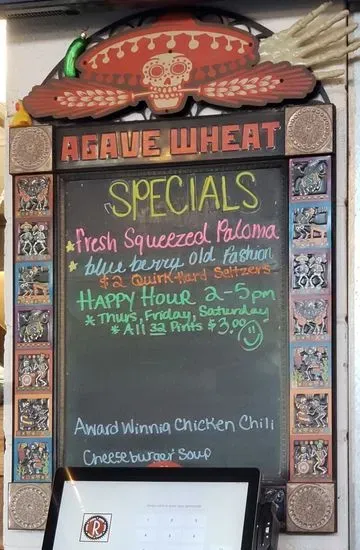 AGAVE WHEAT
SPECIALS
Fresh Squeezed Paloma
blue berry old Fashion
$2 Quirk Hard Seltzers
HAPPY HOUR 2-5pm
* Thurs, Friday, Saturday
* All 32 Pints $3.00
Award Winnig Chicken Chili
Cheeseburger Soup
R